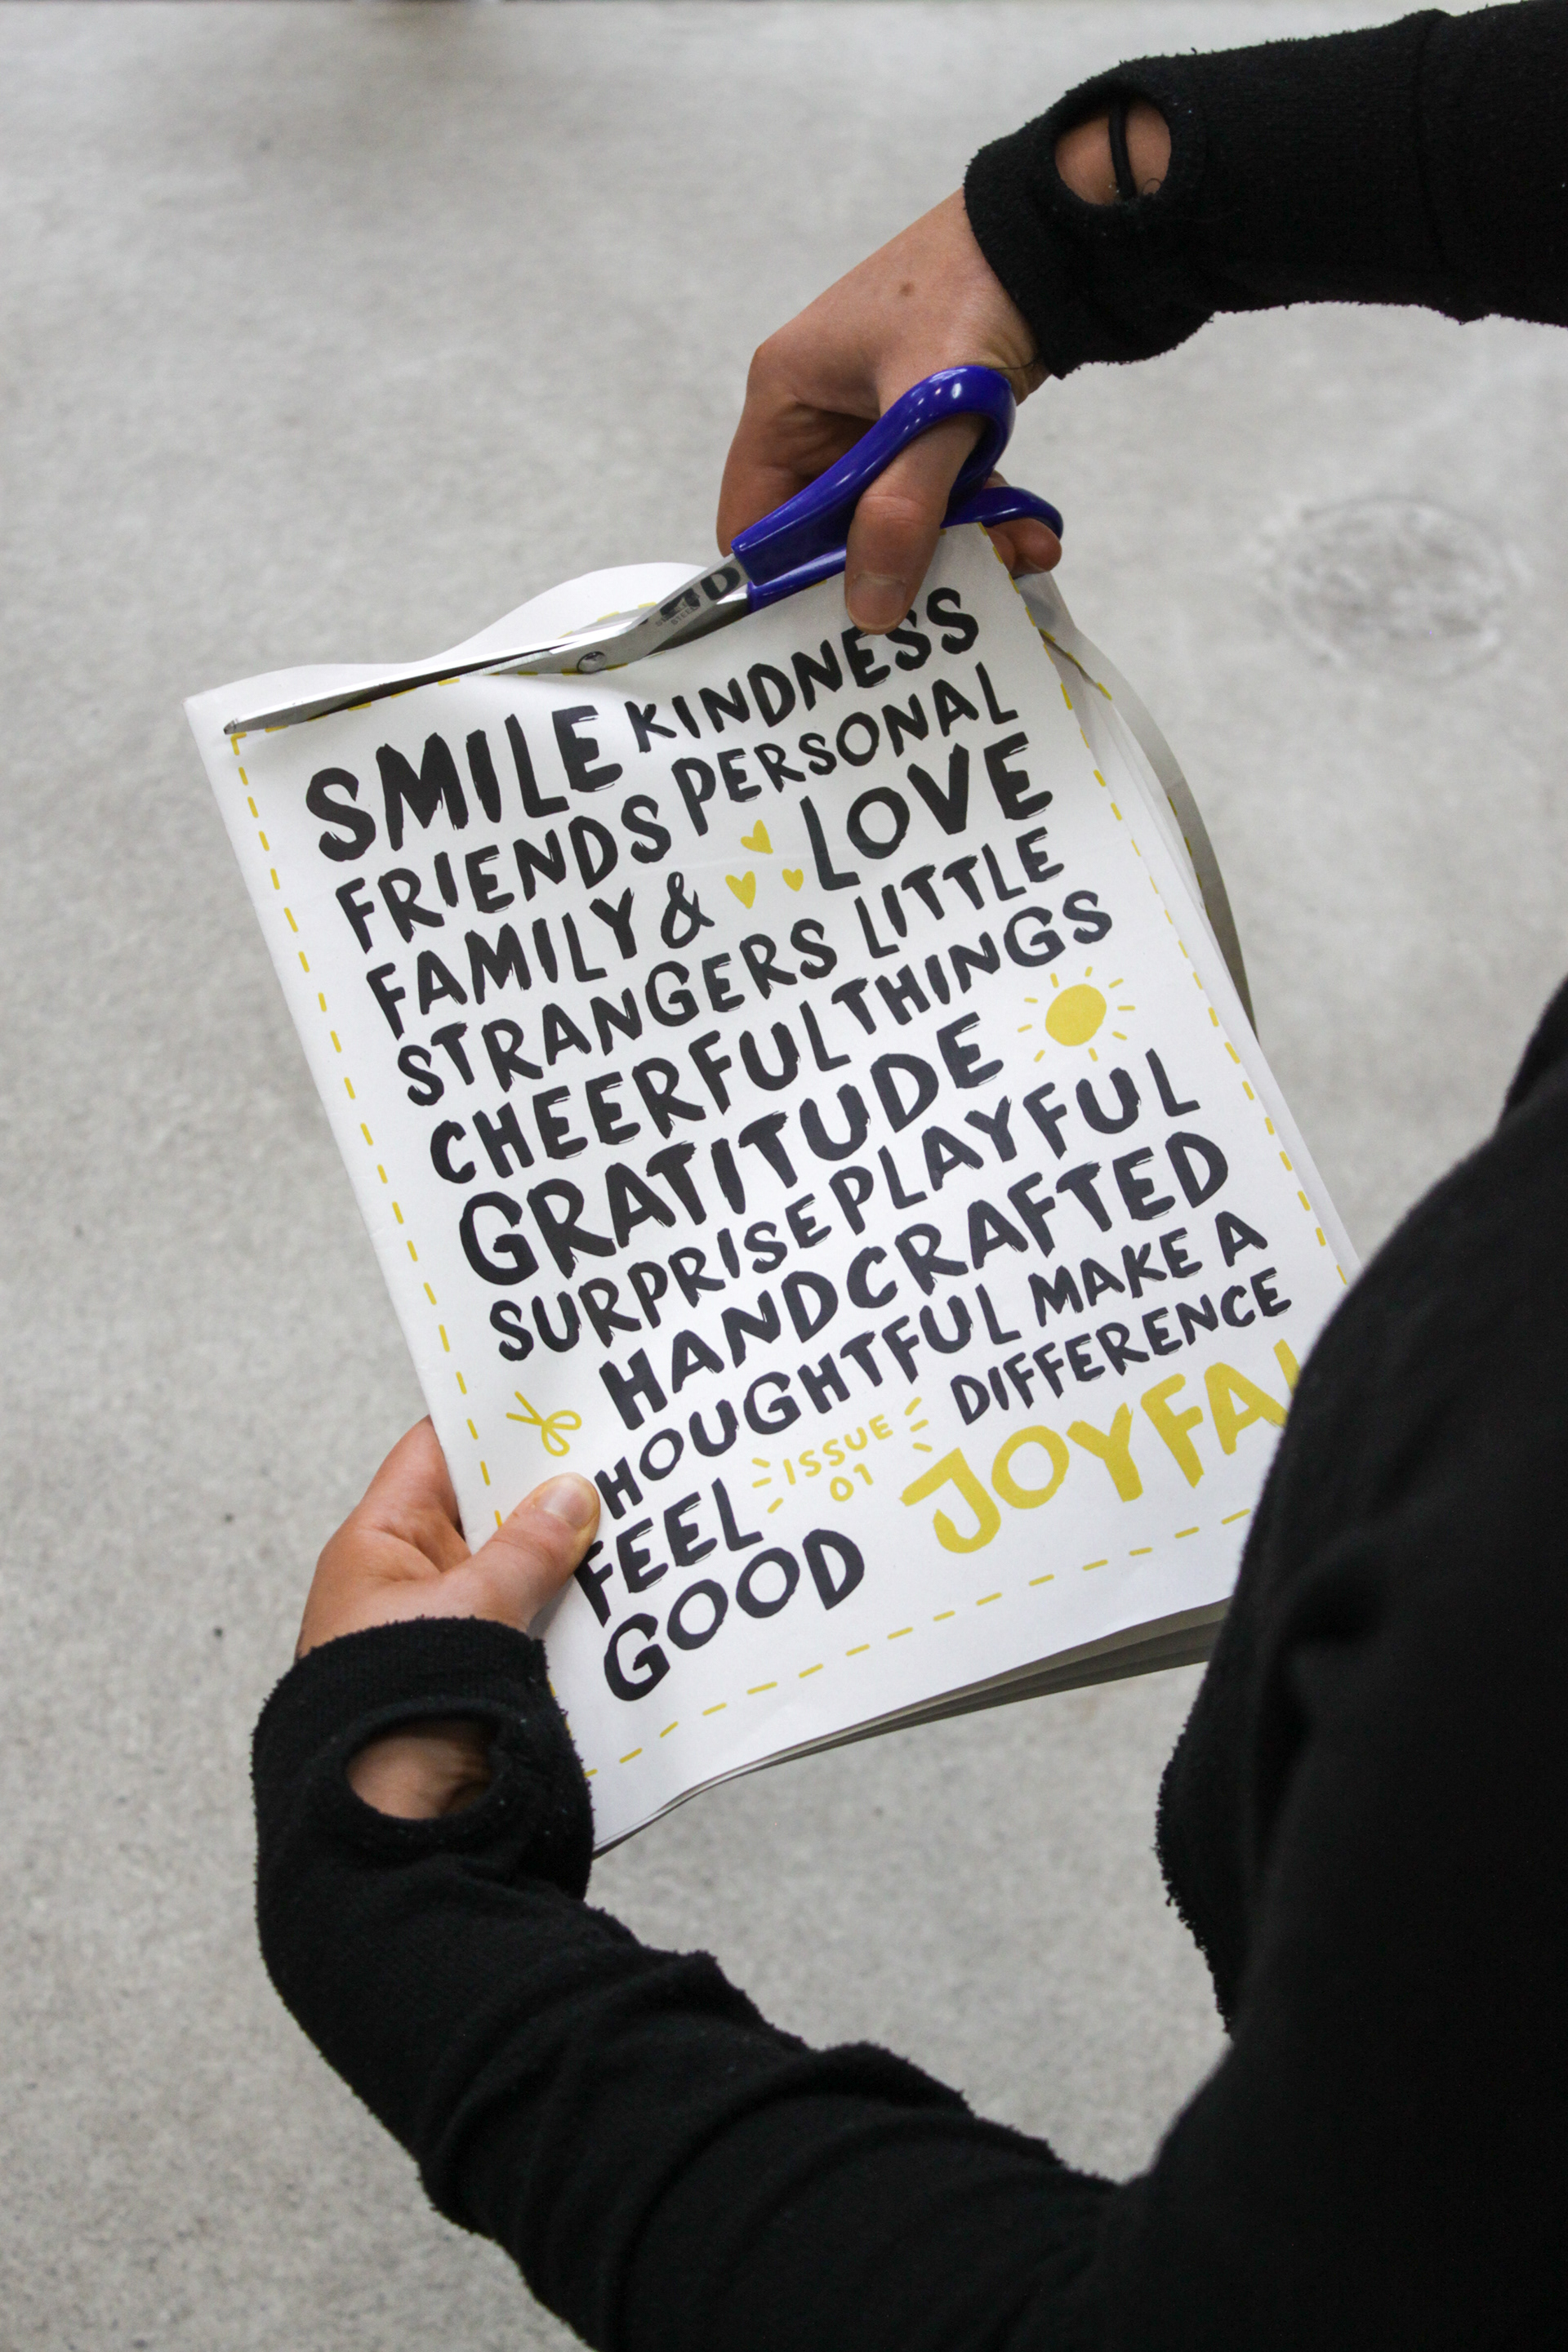 SMILE KINDNESS
FRIENDS PERSONAL
FAMILY & LOVE
STRANGERS LITTLE
CHEERFUL THINGS
GRATITUDE
SURPRISE PLAYFUL
HANDCRAFTED
HOUGHTFUL MAKE A
DIFFERENCE
FEEL
GOOD
ISSUE
01
JOYFA